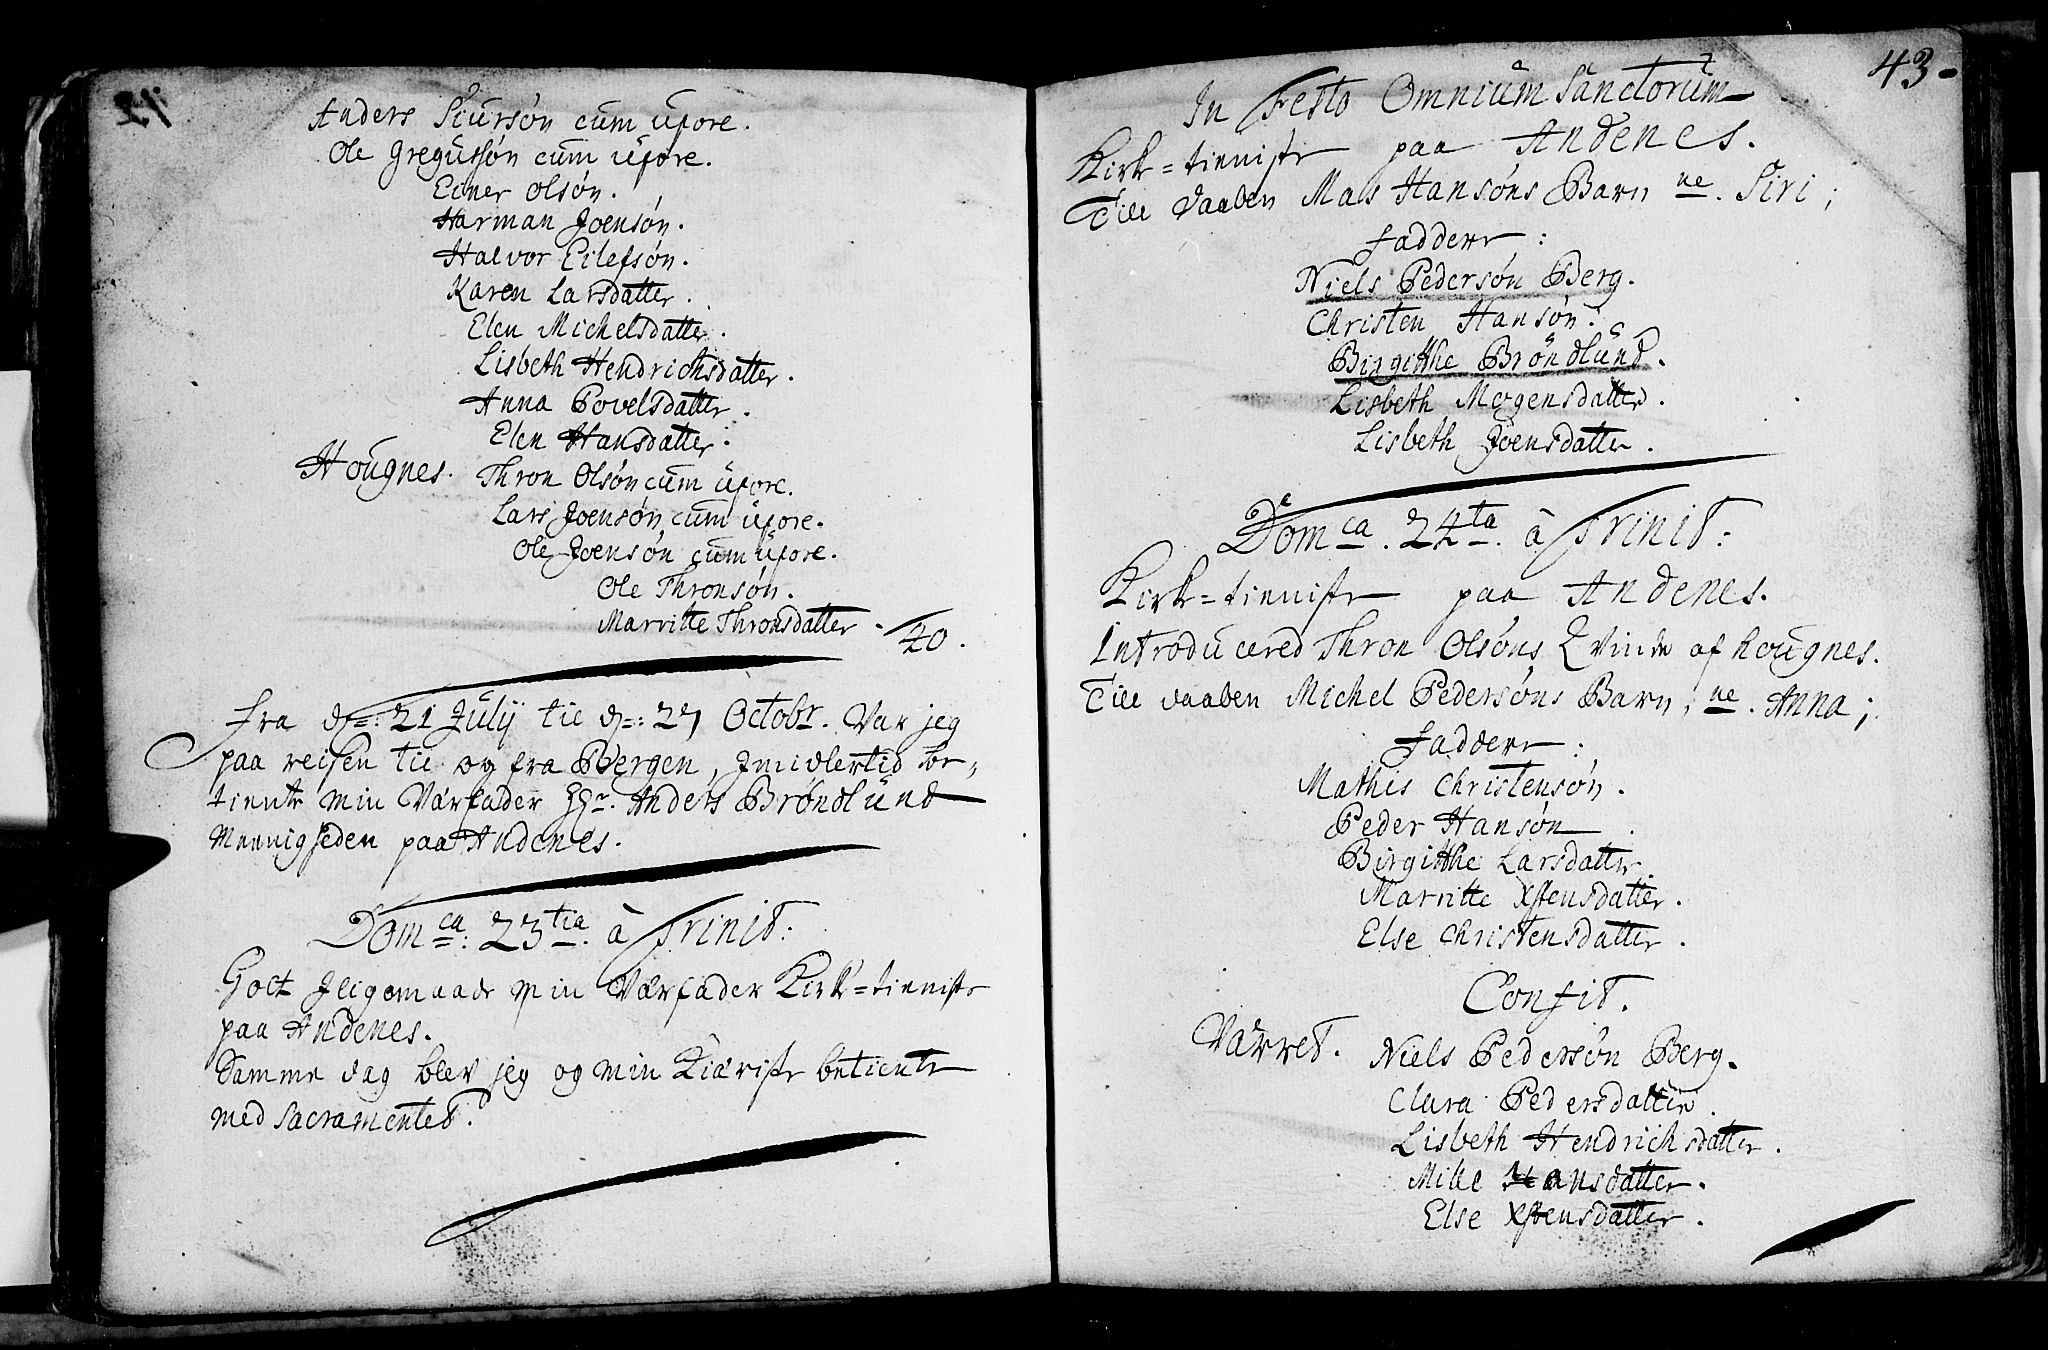 Anders Siursøn cum uxore.
Ole Gregussøn cum uxore.
Einer Olsøn.
Harman Joensøn.
Halvor Eilefsøn.
Karen Larsdatter.
Elen Michelsdatter.
Lisbeth Hendrichsdatter.
Anna Povelsdatter.
Elen Hansdatter.
Hougnes. Thron Olsøn cum uxore.
Lars Joensøn cum uxore.
Ole Joensøn cum uxore.
Ole Thronsøn.
Marritte Thronsdatter. 40.
Fra d: 21 Julij til d: 27 Octobr. Var jeg
paa reisen til og fra Bergen, Imidlertid be-
tiente min Værfader Hr. Anders Brøndlund
Meenigheden paa Andenes.
Domca: 23tia. à Trinit:
Holt Iligemaade min Værfader Kirk-tieniste
paa Andenes.
Samme dag blev jeg og min Kiæriste betiente
med Sacramentet.
43.
In Festo Omnium Sanctorum
Kirk-tieniste paa Andenes.
Till daaben Mals Hansøns Barn ne. Siri;
Faddere:
Niels Pedersøn Berg.
Christen Hansøn.
Birgitthe Brøndlund.
Lisbeth Mogensdatter.
Lisbeth Joensdatter.
Domca. 24ta. à Trinit:
Kirk-tieniste paa Andenes.
Introducered Thron Olsøns Qvinde af Hougnes.
Till daaben Michel Pedersøns Barn, ne. Anna;
Faddere:
Mathis Christensøn.
Peder Hansøn.
Birgitthe Larsdatter.
Marritte Xstensdatter.
Else Christensdatter.
Confit.
Værret. Niels Pedersøn Berg.
Clara Pedersdatter.
Lisbeth Hendrichsdatter.
Mille Hansdatter.
Else Xstensdatter.